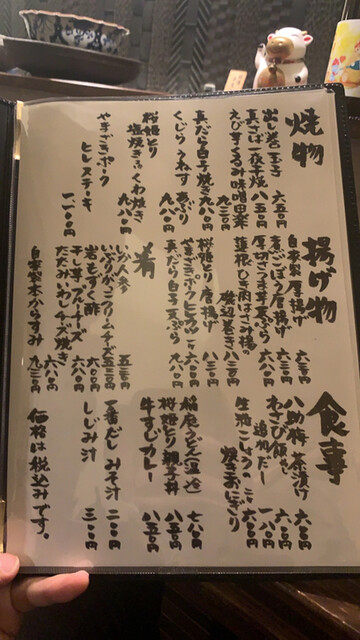 焼物
出し巻玉子 六五〇円
真さば一夜干焼 八五〇円
えびすくるみ味噌田楽 九二〇円
真だら白子焼き 九八〇円
くじらうねす あぶり
桜姫とり 塩焼き・くわ焼き 九八〇円
やまざきポーク ヒレステーキ 一一〇〇円
揚げ物
自家製厚揚げ 六三〇円
煮ごぼう唐揚げ 六三〇円
厚切さつま芋天ぷら 六八〇円
蓮根ひき肉はさみ揚の 磯辺巻き 八三〇円
桜姫とり唐揚げ 八三〇円
やまざきポークヒレカツ
真だら白子天ぷら 九八〇円
肴
いか人参 五三〇円
いぶりがっこクリームチーズ 五三〇円
岩もずく酢 六〇〇円
干し芋ブルーチーズ 六八〇円
たたみいわしチーズ焼き 六八〇円
自家製本からすみ 九三〇円
食事
八助梅茶漬け 六〇〇円
わさび飯 六〇〇円
追加だし 一八〇円
生海こしょうの 焼きおにぎり 六〇〇円
稲庭うどん(温・冷) 七八〇円
桜姫とり親子丼 八五〇円
牛すじカレー 八五〇円
一番だしみそ汁 二〇〇円
しじみ汁 三〇〇円
価格は税込みです。